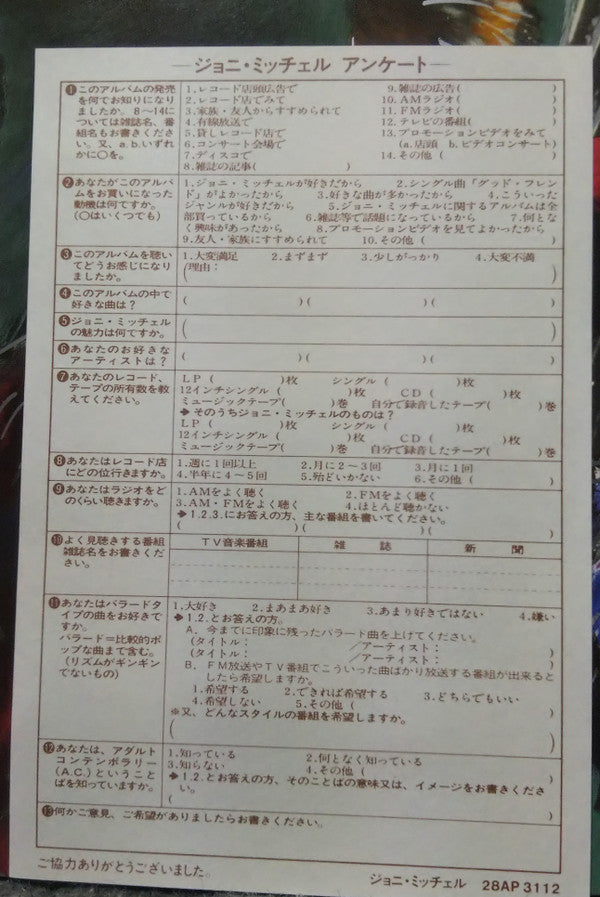 ジョニ・ミッチェル アンケート
❶このアルバムの発売を何でお知りになりましたか。8〜14については雑誌名、番組名もお書きください。又、a.b.いずれかに○を。
1.レコード店頭広告で 9.雑誌の広告( )
2.レコード店でみて 10.AMラジオ( )
3.家族・友人からすすめられて 11.FMラジオ( )
4.有線放送で 12.テレビの番組( )
5.貸しレコード店で 13.プロモーションビデオをみて
6.コンサート会場で (a.店頭 b.ビデオコンサート)
7.ディスコで 14.その他( )
8.雑誌の記事( )
❷あなたがこのアルバムをお買いになった動機は何ですか。(○はいくつでも)
1.ジョニ・ミッチェルが好きだから 2.シングル曲「グッド・フレンド」がよかったから 3.好きな曲が多かったから 4.こういったジャンルが好きだから 5.ジョニ・ミッチェルに関するアルバムは全部買っているから 6.雑誌等で話題になっているから 7.何となく興味があったから 8.プロモーションビデオを見てよかったから
9.友人・家族にすすめられて 10.その他( )
❸このアルバムを聴いてどうお感じになりましたか。
1.大変満足 2.まずまず 3.少しがっかり 4.大変不満
(理由: )
❹このアルバムの中で好きな曲は?
( )( )( )
❺ジョニ・ミッチェルの魅力は何ですか。
( )
❻あなたのお好きなアーティストは?
( )( )( )
❼あなたのレコード、テープの所有数を教えてください。
LP( )枚 シングル( )枚
12インチシングル( )枚 CD( )枚
ミュージックテープ( )巻 自分で録音したテープ( )巻
➔そのうちジョニ・ミッチェルのものは?
LP( )枚 シングル( )枚
12インチシングル( )枚 CD( )枚
ミュージックテープ( )巻 自分で録音したテープ( )巻
❽あなたはレコード店にどの位行きますか。
1.週に1回以上 2.月に2〜3回 3.月に1回
4.半年に4〜5回 5.殆どいかない 6.その他( )
❾あなたはラジオをどのくらい聴きますか。
1.AMをよく聴く 2.FMをよく聴く
3.AM・FMをよく聴く 4.ほとんど聴かない
➔1.2.3.にお答えの方、主な番組を書いてください。
( )( )( )
❿よく見聴きする番組雑誌名をお書きください。
TV音楽番組 雑誌 新聞
⓫あなたはバラードタイプの曲をお好きですか。
バラード=比較的ポップな曲まで含む。
(リズムがギンギンでないもの)
1.大好き 2.まあまあ好き 3.あまり好きではない 4.嫌い
➔1.2.とお答えの方。
A.今までに印象に残ったバラード曲を上げてください。
(タイトル: /アーティスト: )
(タイトル: /アーティスト: )
B.FM放送やTV番組でこういった曲ばかり放送する番組が出来るとしたら希望しますか。
1.希望する 2.できれば希望する 3.どちらでもいい
4.希望しない 5.その他( )
※又、どんなスタイルの番組を希望しますか。
( )
⓬あなたは、アダルトコンテンポラリー(A.C.)ということばを知っていますか。
1.知っている 2.何となく知っている
3.知らない 4.その他( )
➔1.2.とお答えの方、そのことばの意味又は、イメージをお書きください。
( )
⓭何かご意見、ご希望がありましたらお書きください。
ご協力ありがとうございました。
ジョニ・ミッチェル 28AP 3112